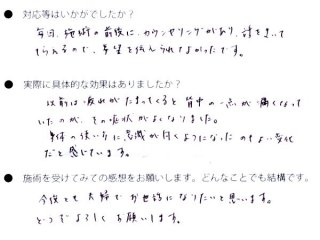 ● 対応等はいかがでしたか？
毎回、施術の前後に、カウンセリングがあり、話をきいて
もらえるので、希望を伝えられてよかったです。
● 実際に具体的な効果はありましたか？
以前は疲れがたまってくると背中の一点が痛くなって
いたのが、その症状がよくなりました。
身体の使い方に意識が向くようになったのもよい変化
だと感じています。
● 施術を受けてみての感想をお願いします。どんなことでも結構です。
今後とも夫婦でお世話になりたいと思います。
どうぞよろしくお願いします。